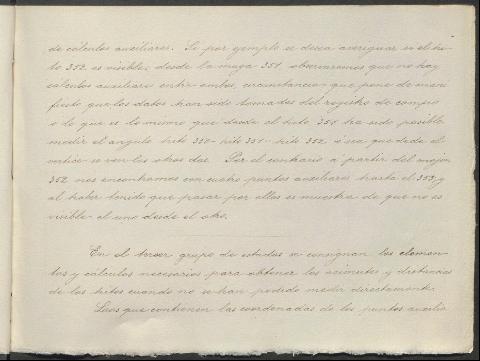 de cálculos auxiliares. Si por ejemplo se desea averiguar si el hi-
to 352 es visible desde la muga 351 observaremos que no hay
cálculos auxiliares entre ambos, circunstancia que pone de mani-
fiesto que los datos han sido tomados del registro de campo
o lo que es lo mismo que desde el hito 351 ha sido posible
medir el angulo hito 350-hito 351-hito 352 ó sea que desde el
vertice se ven los otros dos. Por el contrario á partir del mojon
352 nos encontramos con cuatro puntos auxiliares hasta el 353, y
al haber tenido que pasar por ellos es muestra de que no es
visible el uno desde el otro.
En el tercer grupo de estados se consignan los elemen-
tos y cálculos necesarios para obtener los azimutes y distancias
de los hitos cuando no se han podido medir directamente.
Los que contienen las coordenadas de los puntos auxilia